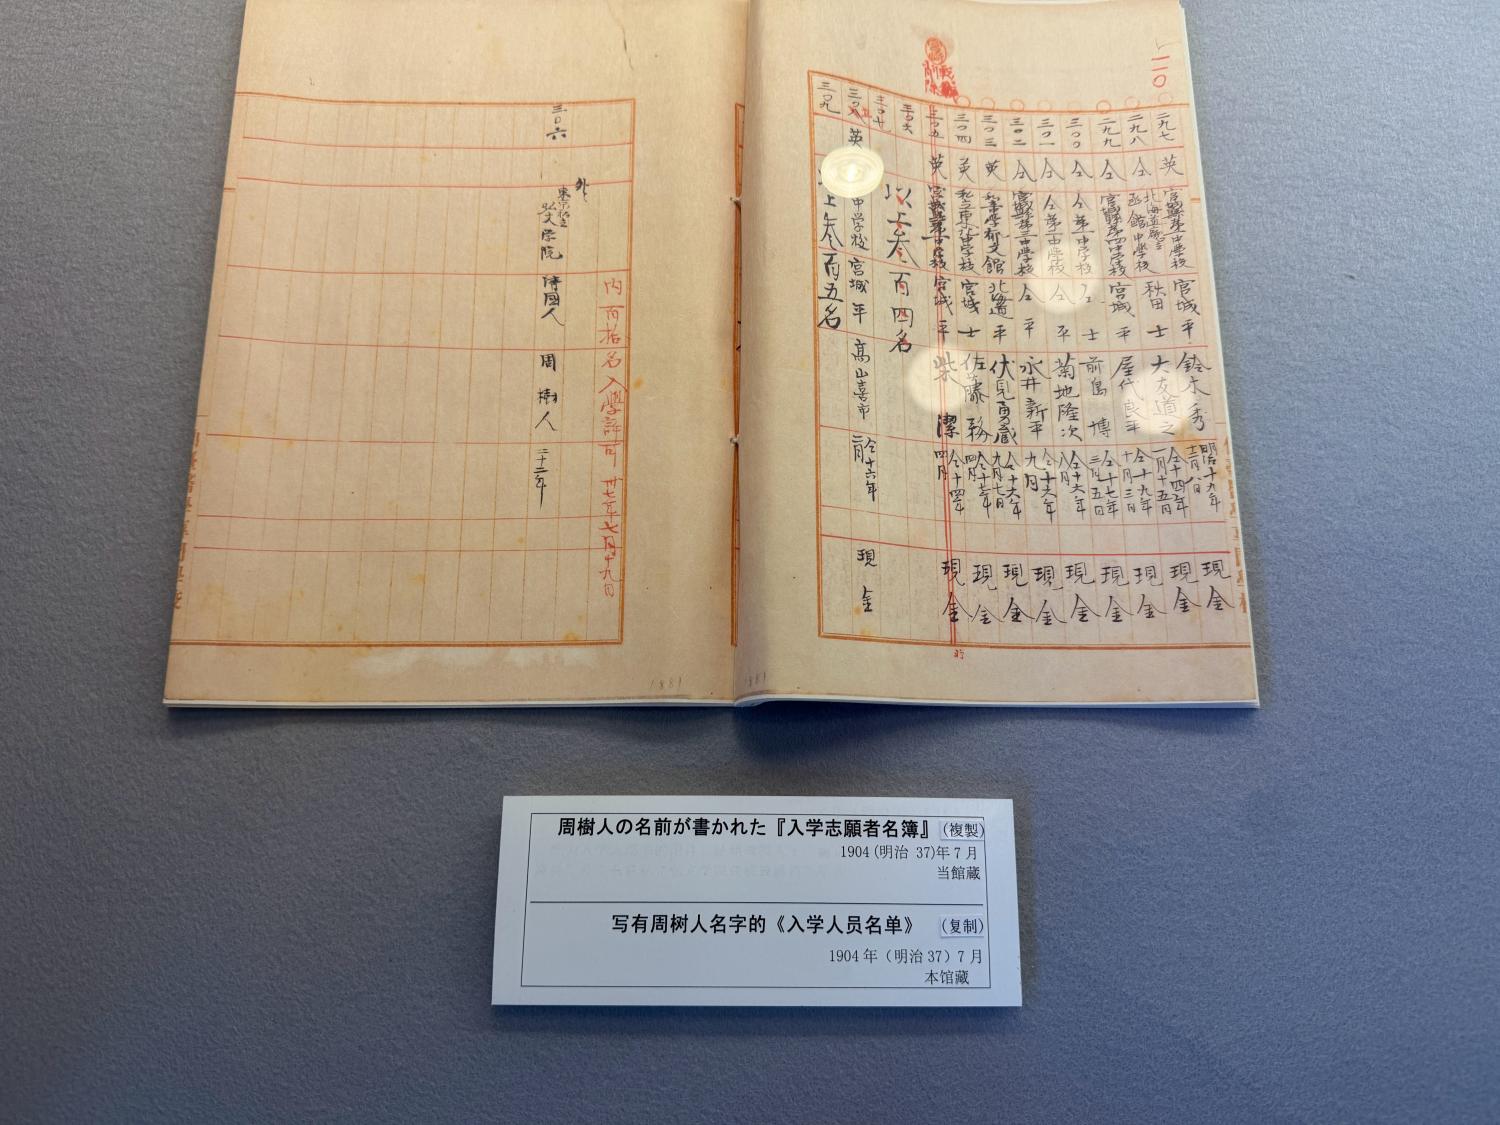 一一〇
二九七 英 宮城縣第一中学校 宮城 平 鈴木秀 明治十九年十二月八日 現金
二九八 仝 北海道廳立函館中学校 秋田 士 大友道之 仝十四年一月十五日 現金
二九九 仝 宮城縣第四中学校 宮城 平 屋代良平 仝十九年十月三日 現金
三〇〇 仝 仝第一中学校 仝 士 前島博 仝十七年三月五日 現金
三〇一 仝 仝第一中学校 仝 平 菊地隆次 仝十六年八月 現金
三〇二 仝 宮城縣第三中学校 仝 平 永井新平 仝十六年九月 現金
三〇三 英 私立中学郁文館 北海道 平 伏見勇蔵 仝十六年九月七日 現金
三〇四 英 私立東北中学校 宮城 士 佐藤務 仝十七年四月 現金
三〇五 英 宮城縣第一中学校 宮城 平 柴潔 仝十四年四月 現金
三〇六
以上叁百四名
三〇七
三〇八 英 中学校 宮城 平 高山喜市 仝十六年二月 現金
三〇九
以上叁百五名
内 百拾名入學許可 卅七年七月十九日
外
三〇六 東京私立弘文学院 清國人 周樹人 二十二年
1881
1881
周樹人の名前が書かれた『入学志願者名簿』(複製)
1904(明治 37)年7月
当館蔵
写有周树人名字的《入学人员名单》 (复制)
1904年（明治37）7月
本馆藏